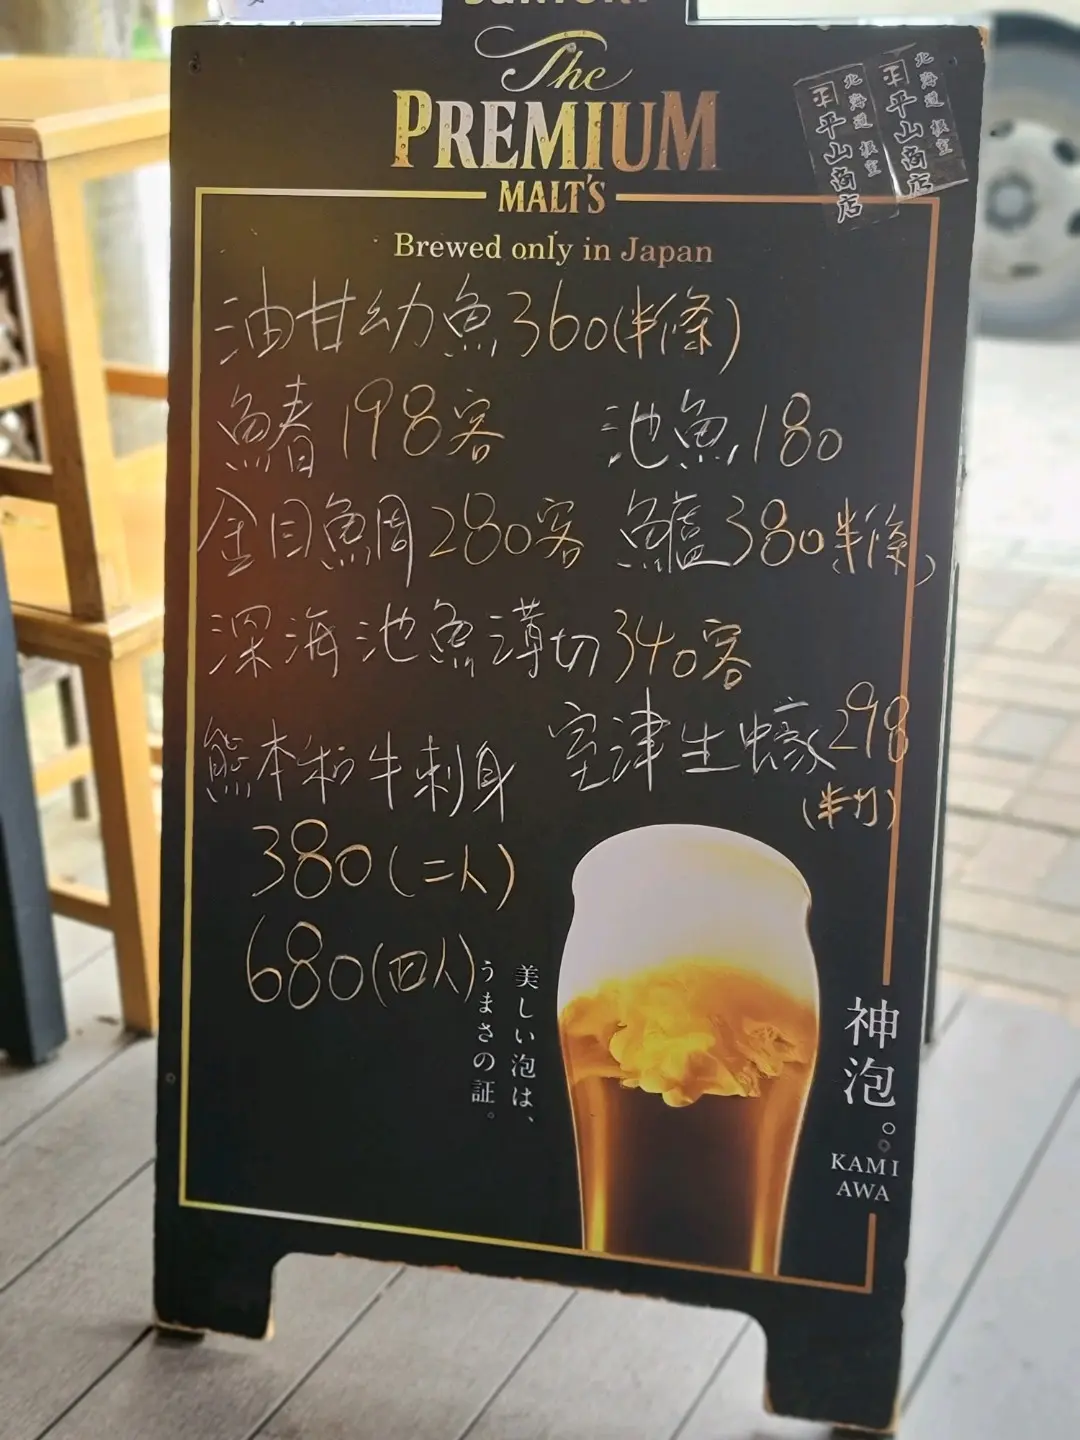 SUNTORY
The
PREMIUM
MALT'S
Brewed only in Japan
北海道 根室
平山商店
北海道 根室
平山商店
油甘幼魚360(半條)
鰆198客 池魚180
金目鯛280客 鱸380(半條)
深海池魚薄切340客
熊本和牛刺身
室津生蠔298
(半打)
380(二人)
680(四人)
美しい泡は、
うまさの証。
神泡。
KAMI
AWA